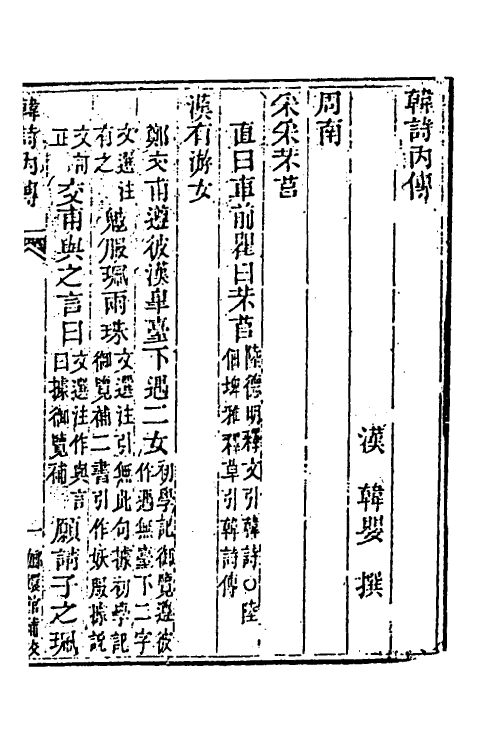 韓詩內傳
漢 韓嬰 撰
周南
采采芣苢
直曰車前瞿曰芣苢陸德明釋文引韓詩○陸佃埤雅釋草引韓詩傳
漢有游女
鄭交甫遵彼漢臯臺下遇二女初學記御覽遵彼作過無臺下二字
文選注有之魅服珮兩珠文選注引無此句據初學記御覽補二書引作妖服據說
文訂正交甫與之言曰文選注作與言曰據御覽補願請子之珮
韓詩內傳
一